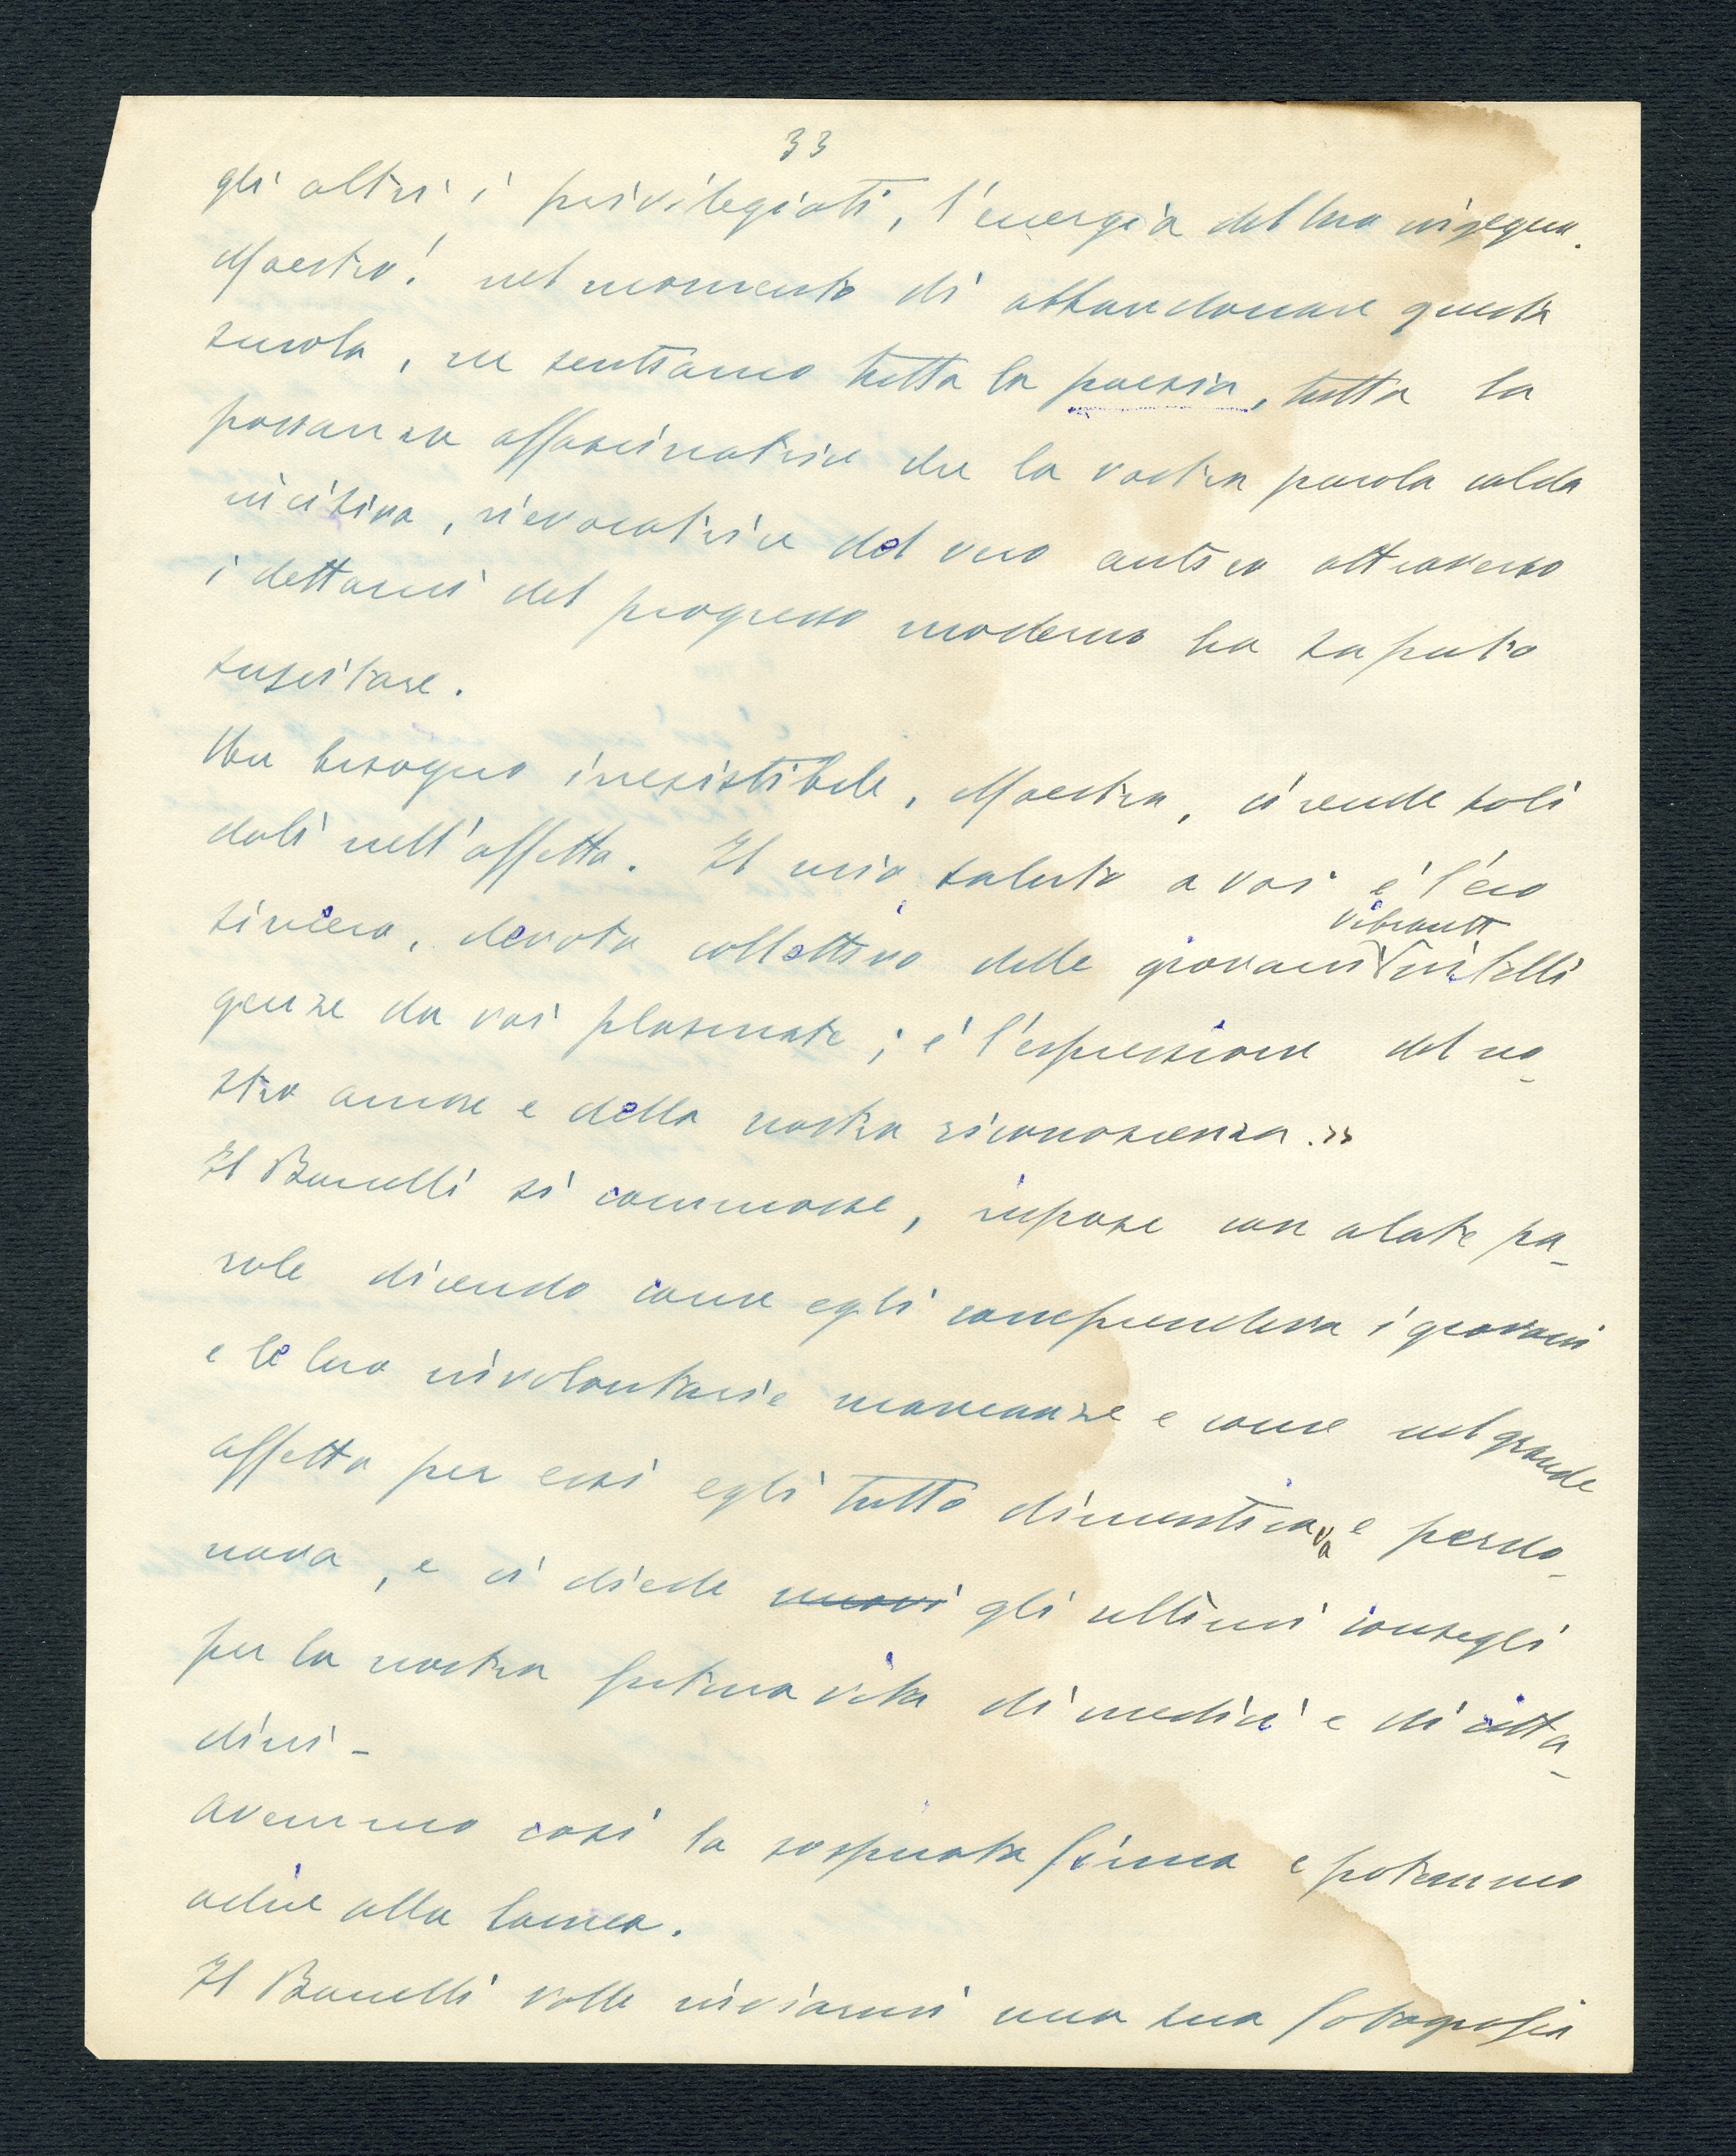 33
gli altri i privilegiati, l'energia del loro ingegno.
Maestro! nel momento di abbandonare questa
scuola, ne sentiamo tutta la poesia, tutta la
possanza affascinatrice che la vostra parola calda
incisiva, rievocatrice del vero antico attraverso
i dettami del progresso moderno ha saputo
suscitare.
Un bisogno irresistibile, Maestro, ci rende soli
dali nell'affetto. Il mio saluto a voi è l'eco
sincera, devota collettiva delle giovani vibranti intelli
genze da voi plasmate; è l'espressione del no_
stro amore e della nostra riconoscenza.»
Il Burrelli si commosse, rispose con alate pa_
role dicendo come egli comprendeva i giovani
e le loro involontarie mancanze e come nel grande
affetto per essi egli tutto dimenticava e perdo_
nava, e ci diede nuovi gli ultimi consigli
per la nostra futura vita di medici e di citta_
dini -
Avemmo così la sospirata firma e potemmo
adire alla laurea.
Il volle inviarmi una sua fotografia